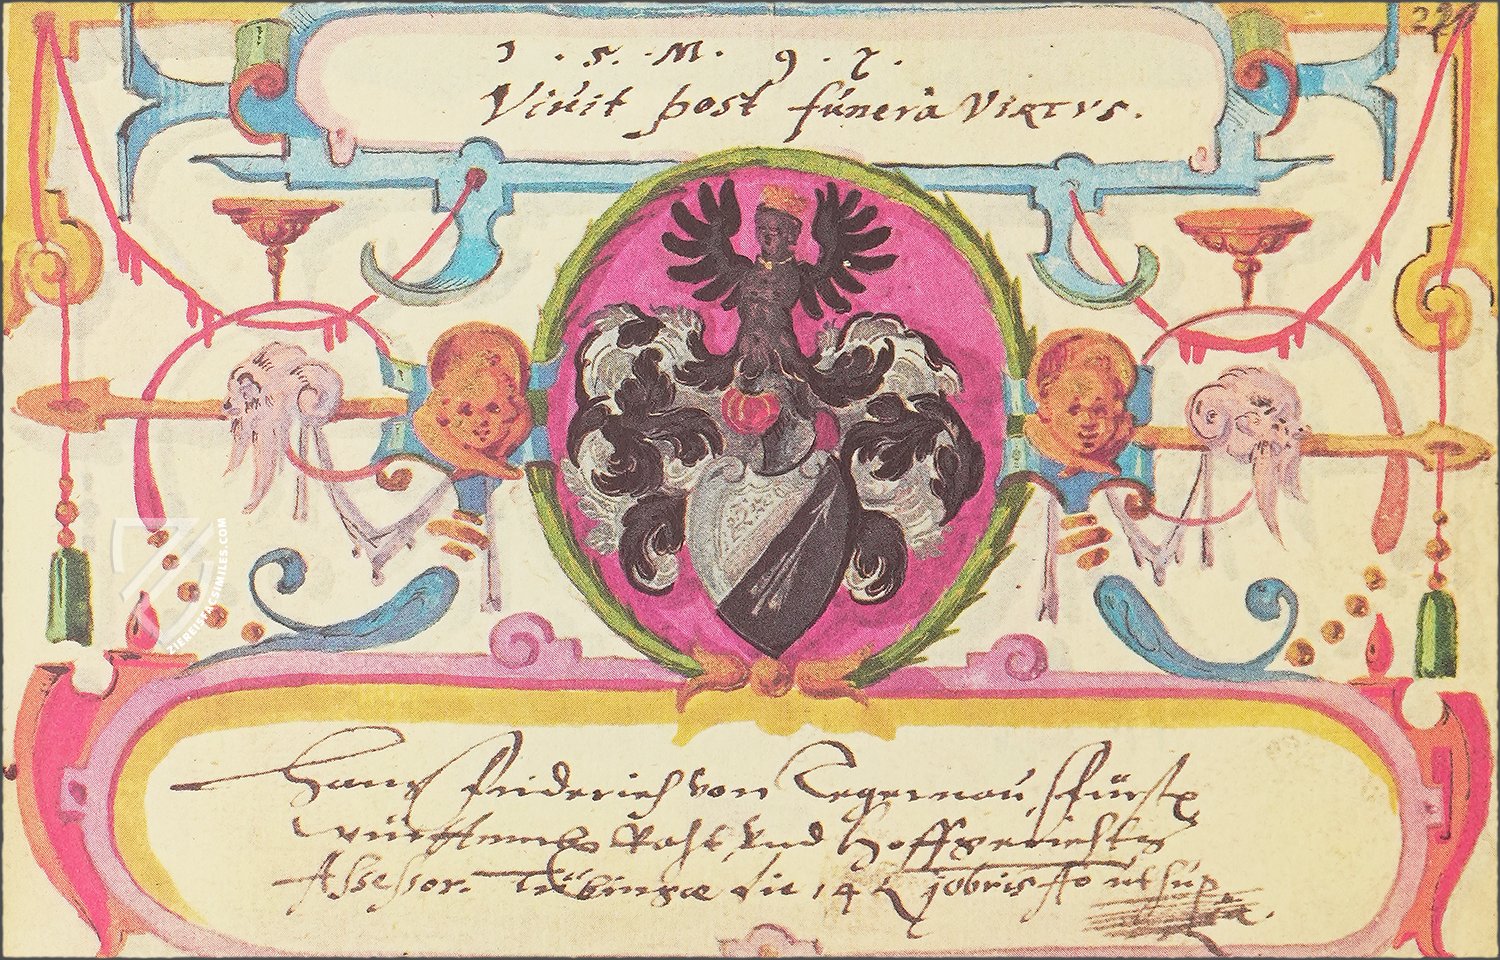 229
1 . 5 . M . 9 . 7 .
Viuit post funera VIRTVS.
Hans Friderich von Tegernau, Fürstl
württemb. Raht und Hoffgerichts
Assessor. Tübingæ die 14 Xbris Ao ut sup
ZIEREIS FACSIMILES.COM